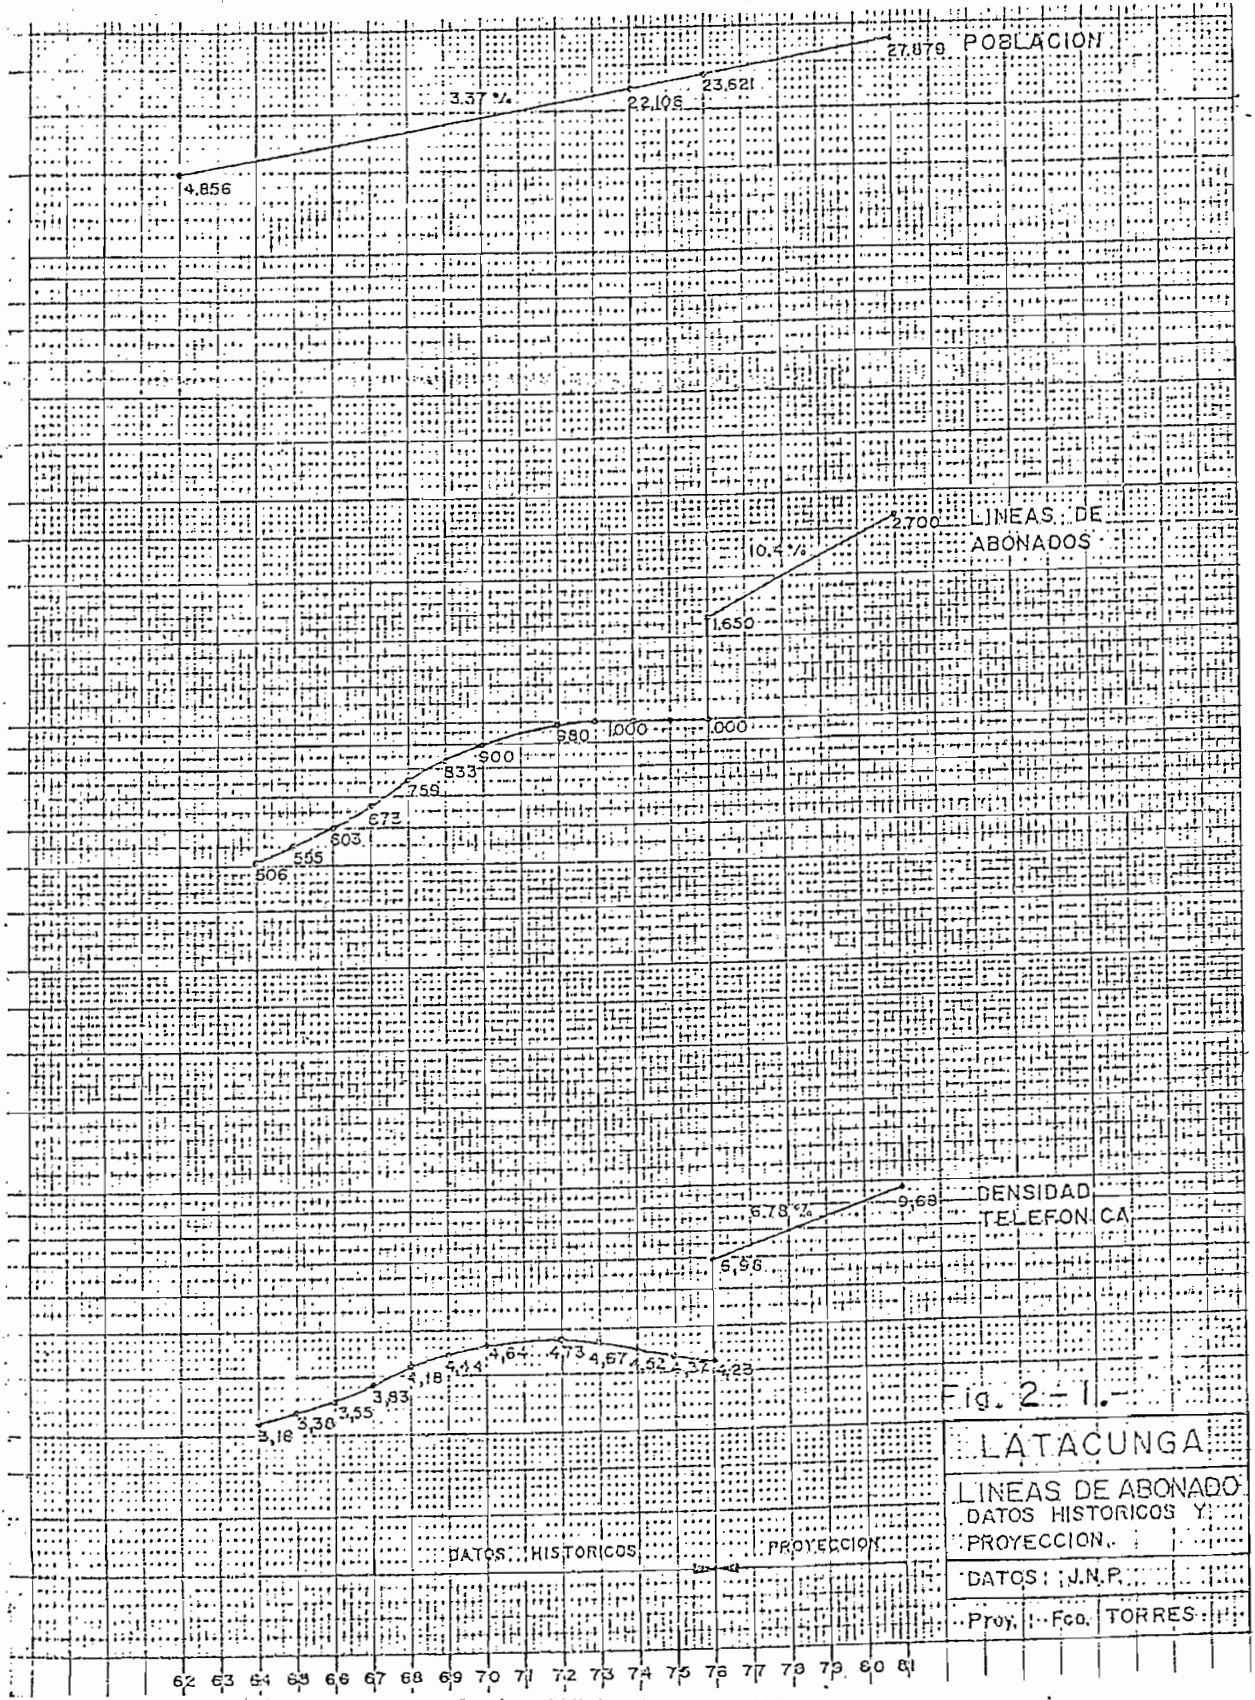 27.879 POBLACION
23.621
3.37 %
22.106
4.856
2.700 LINEAS DE
ABONADOS
10.4 %
1.650
980 1.000 1.000
900
833
759
673
603
555
506
DENSIDAD
TELEFONICA
9,68
6.78 %
6,98
4,64 4,73 4,67 4,52 4,37 4,23
4,44
4,18
3,83
3,55
3,38
3,18
Fig. 2 - 1.-
LATACUNGA
LINEAS DE ABONADO
DATOS HISTORICOS Y
PROYECCION.
DATOS HISTORICOS PROYECCION
DATOS: J.N.P.
Proy. Fco. TORRES
62 63 64 65 66 67 68 69 70 71 72 73 74 75 76 77 78 79 80 81